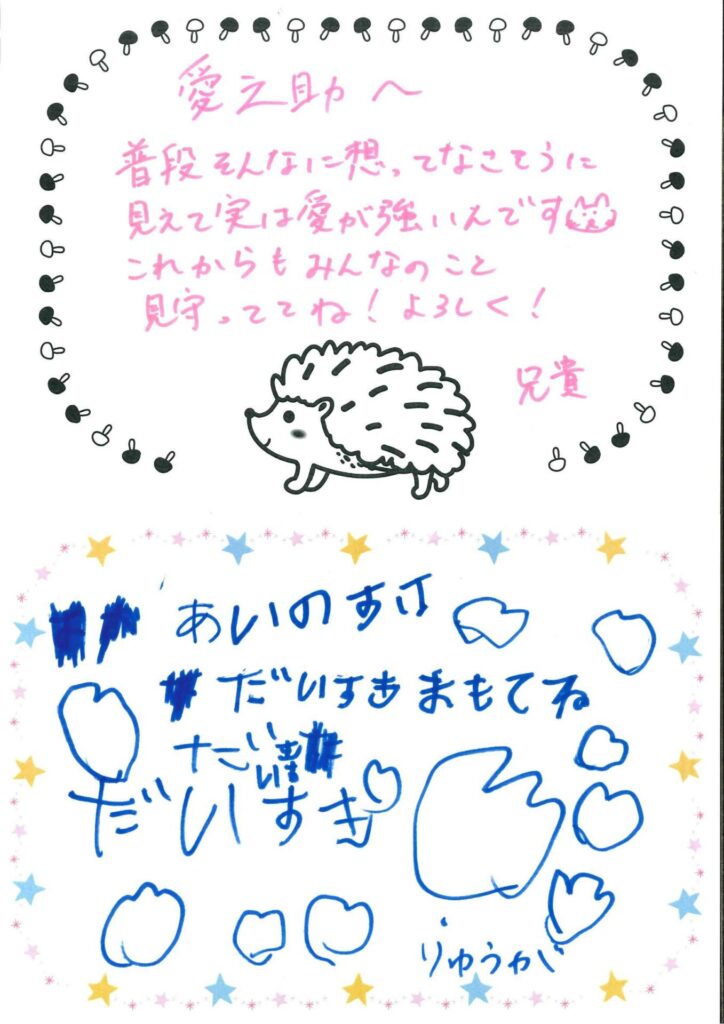 愛之助へ
普段そんなに想ってなさそうに
見えて実は愛が強いんです
これからもみんなのこと
見守っててね！よろしく！
兄貴
あいのすけ
だいすきまもてね
だい
だいすき
りゅうが